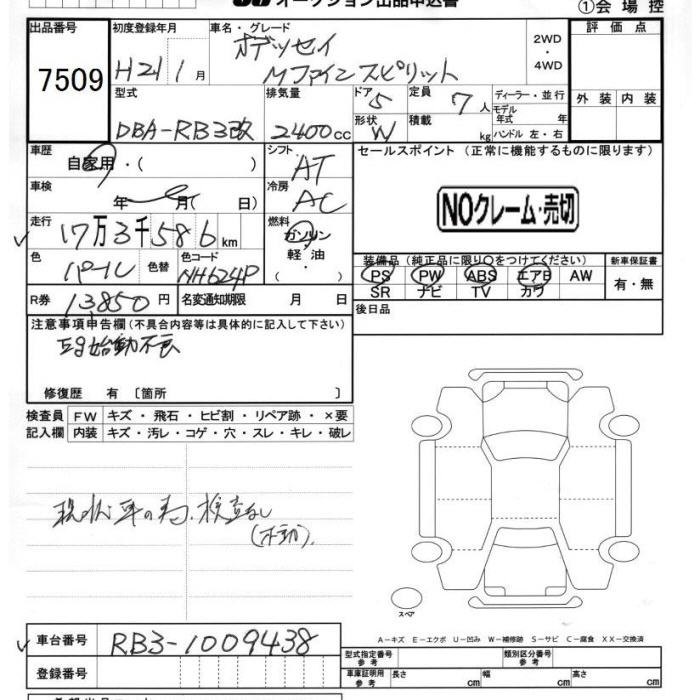 オークション出品申込書
①会場控
出品番号
7509
初度登録年月
H21 1月
車名・グレード
オデッセイ
Mファインスピリット
2WD
・
4WD
評価点
外装 内装
型式
DBA-RB3改
排気量
2400cc
ドア
5
形状
W
定員
7人
積載
kg
ディーラー・並行
モデル
年式 年
ハンドル 左・右
車歴
自家用・( )
シフト
AT
セールスポイント (正常に機能するものに限ります)
NOクレーム・売切
車検
年 月( 日)
冷房
AC
走行
17万3千586km
燃料
ガソリン
・
軽油
( )
色
パール
色替
色コード
NH624P
装備品 (純正品に限り○をつけてください)
PS PW ABS エアB AW
SR ナビ TV カワ
新車保証書
有・無
R券
13,850円
名変通知期限 月 日
後日品
注意事項申告欄(不具合内容等は具体的に記入して下さい)
始動不良
修復歴 有 [箇所 ]
検査員
記入欄
FW キズ・飛石・ヒビ割・リペア跡・×要
内装 キズ・汚レ・コゲ・穴・スレ・キレ・破レ
現状車の為、検査なし
(不動).
スペア
A−キズ E−エクボ U−凹み W−補修跡 S−サビ C−腐食 XX−交換済
車台番号
RB3-1009438
登録番号
型式指定番号
参考
類別区分番号
参考
車庫証明用
参考
長さ cm 幅 cm 高さ cm